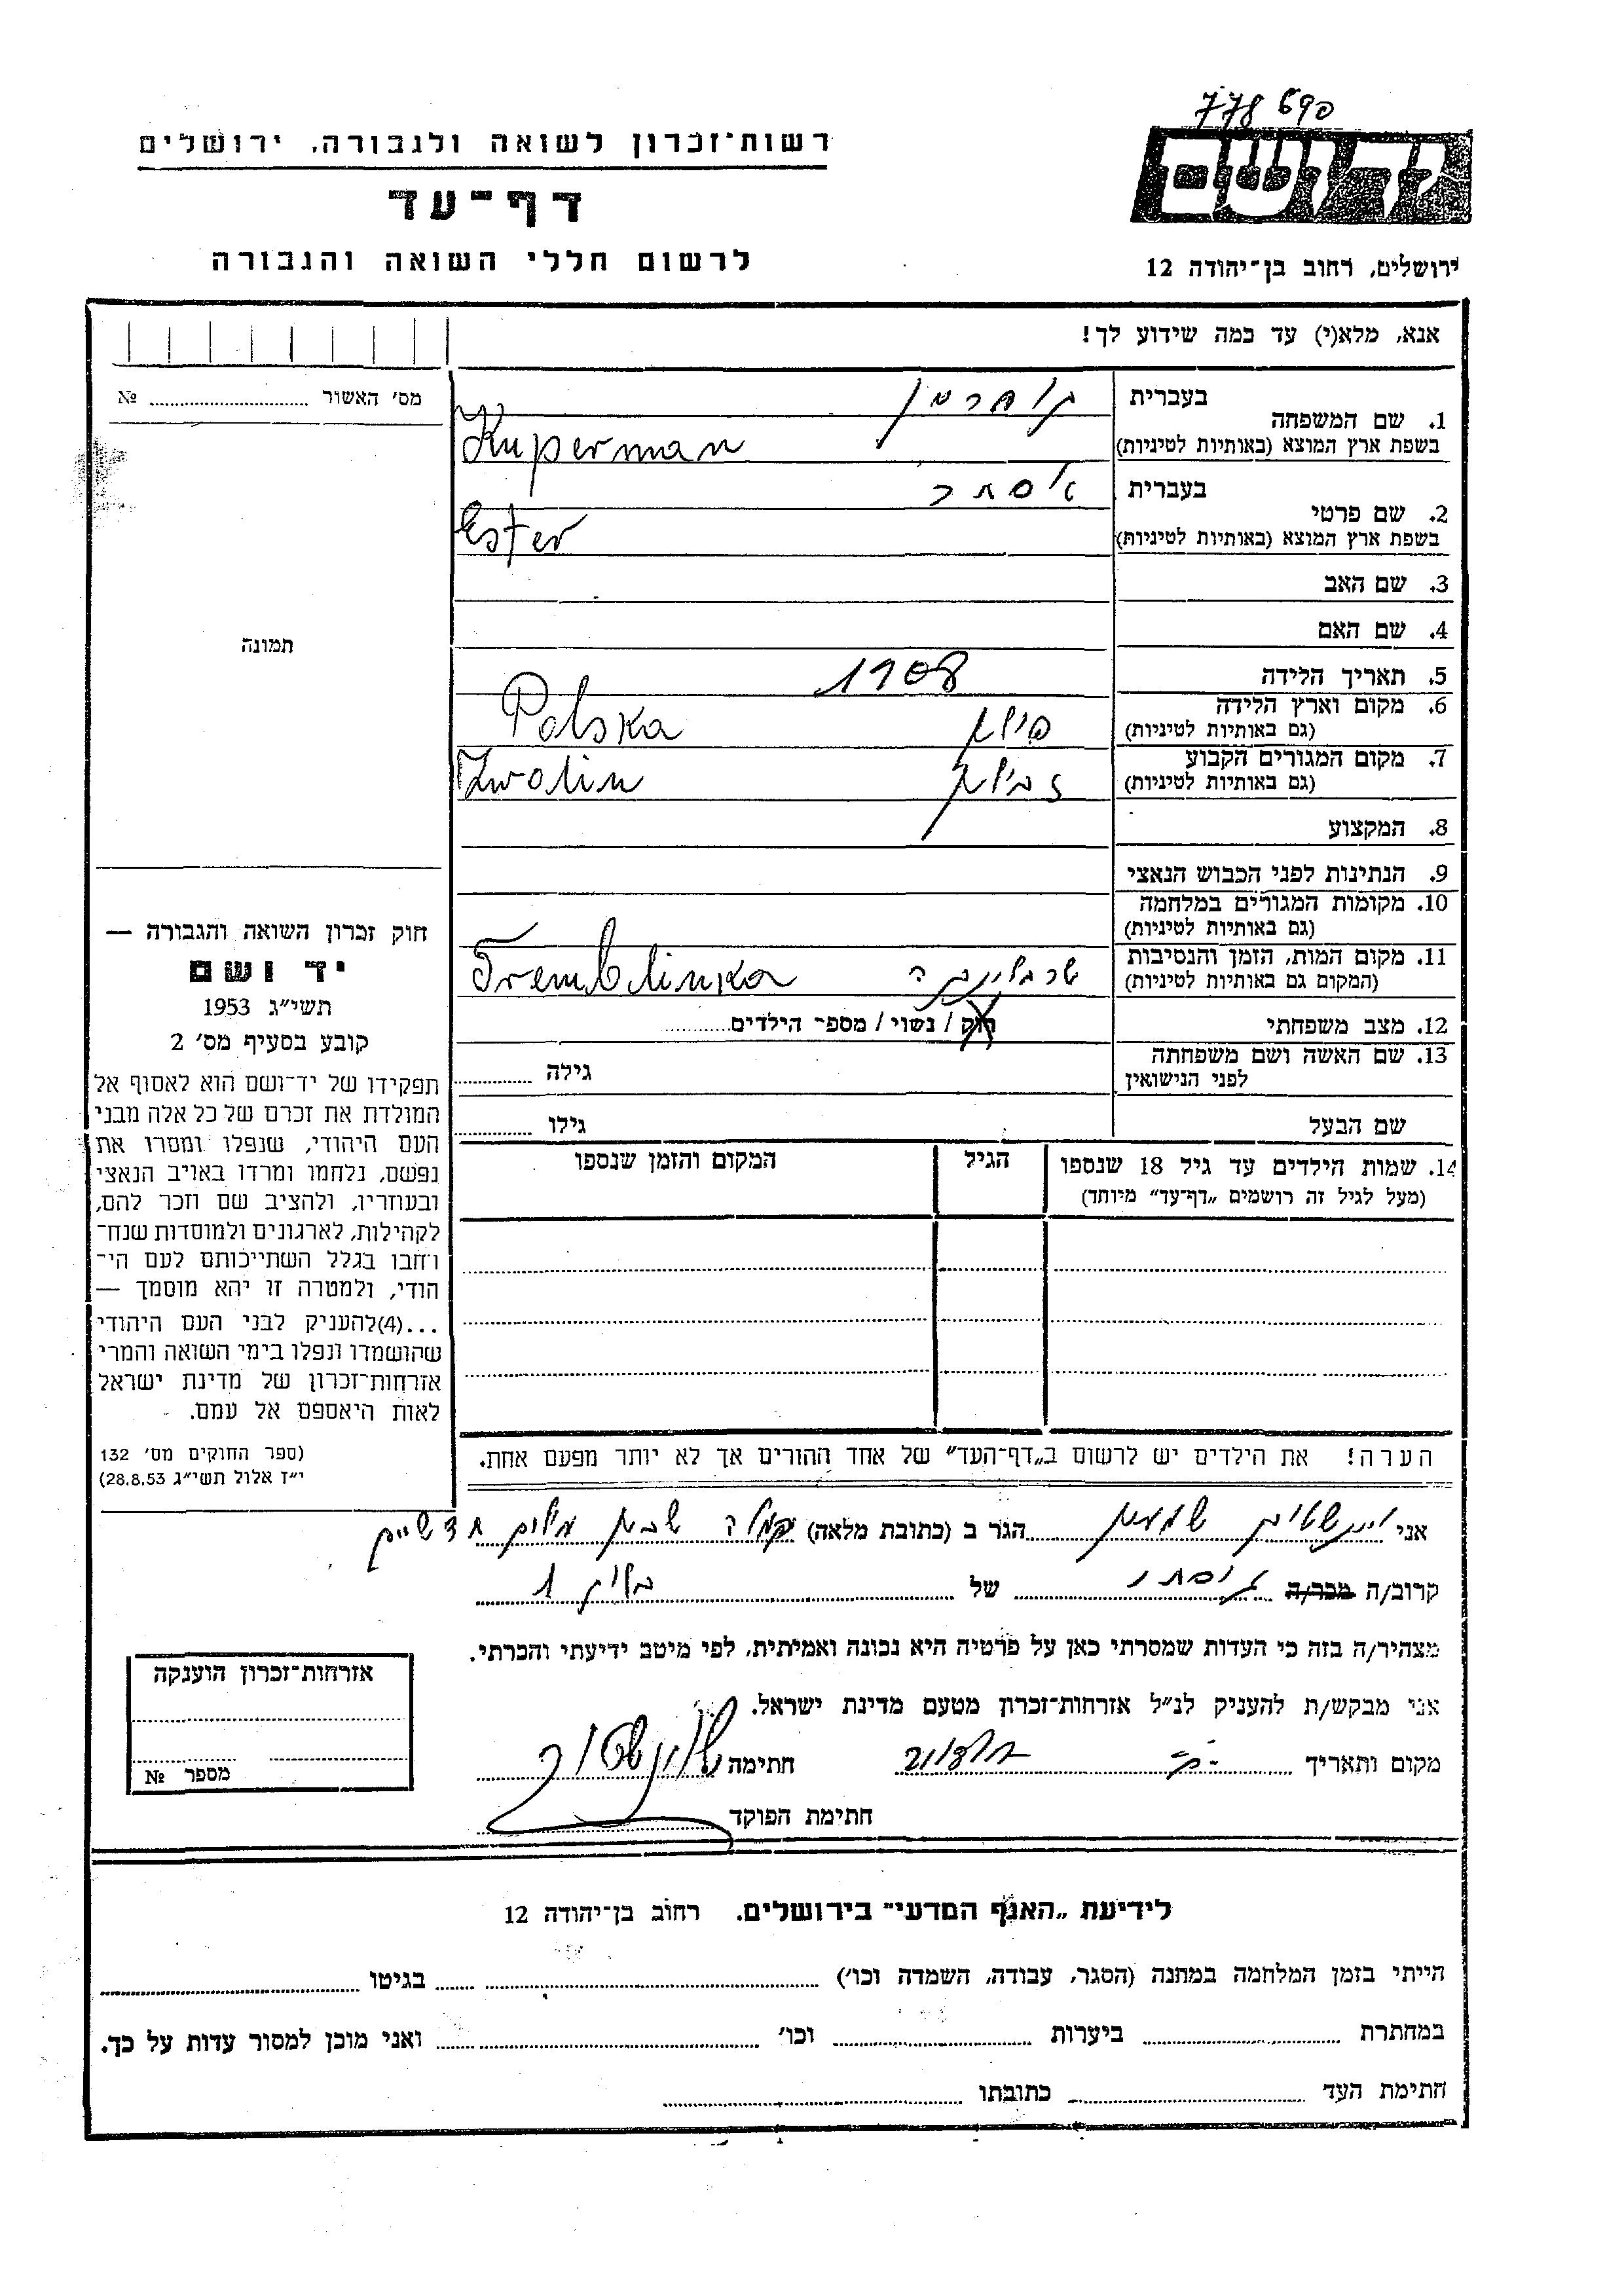 778690
רשות־זכרון לשואה ולגבורה, ירושלים
ידושם
דף־עד
לרשום חללי השואה והגבורה
ירושלים, רחוב בן־יהודה 12
אנא, מלא(י) עד כמה שידוע לך!
מס׳ האשור № ........
1. שם המשפחה
בעברית קופרמן
בשפת ארץ המוצא (באותיות לטיניות) Kuperman
2. שם פרטי
בעברית אסתר
בשפת ארץ המוצא (באותיות לטיניות) Ester
3. שם האב
4. שם האם
תמונה
5. תאריך הלידה 1908
6. מקום וארץ הלידה
(גם באותיות לטיניות) פולין Polska
7. מקום המגורים הקבוע
(גם באותיות לטיניות) זבולין Zwolin
8. המקצוע
9. הנתינות לפני הכבוש הנאצי
10. מקומות המגורים במלחמה
(גם באותיות לטיניות)
11. מקום המות, הזמן והנסיבות
(המקום גם באותיות לטיניות) טרבלינקה Tremblinka
12. מצב משפחתי רוק / נשוי / מספר הילדים
13. שם האשה ושם משפחתה
לפני הנישואין גילה
שם הבעל גילו
14. שמות הילדים עד גיל 18 שנספו
(מעל לגיל זה רושמים „דף־עד״ מיוחד)
הגיל
המקום והזמן שנספו
חוק זכרון השואה והגבורה —
יד ושם
תשי״ג 1953
קובע בסעיף מס׳ 2
תפקידו של יד־ושם הוא לאסוף אל
המולדת את זכרם של כל אלה מבני
העם היהודי, שנפלו ומסרו את
נפשם, נלחמו ומרדו באויב הנאצי
ובעוזריו, ולהציב שם וזכר להם,
לקהילות, לארגונים ולמוסדות שנח־
רבו בגלל השתייכותם לעם הי־
הודי, ולמטרה זו יהא מוסמך —
...(4)להעניק לבני העם היהודי
שהושמדו ונפלו בימי השואה והמרי
אזרחות־זכרון של מדינת ישראל
לאות היאספם אל עמם.
(ספר החוקים מס׳ 132
י״ז אלול תשי״ג 28.8.53)
הערה! את הילדים יש לרשום ב„דף־העד״ של אחד ההורים אך לא יותר מפעם אחת.
אני הגר ב (כתובת מלאה)
קרוב/ה מכר/ה של
מצהיר/ה בזה כי העדות שמסרתי כאן על פרטיה היא נכונה ואמיתית, לפי מיטב ידיעתי והכרתי.
אני מבקש/ת להעניק לנ״ל אזרחות־זכרון מטעם מדינת ישראל.
מקום ותאריך חתימה
חתימת הפוקד
אזרחות־זכרון הוענקה
מספר №
לידיעת „האגף המדעי״ בירושלים. רחוב בן־יהודה 12
הייתי בזמן המלחמה במחנה (הסגר, עבודה, השמדה וכו׳) בגיטו
במחתרת ביערות וכו׳ ואני מוכן למסור עדות על כך.
חתימת העד כתובתו